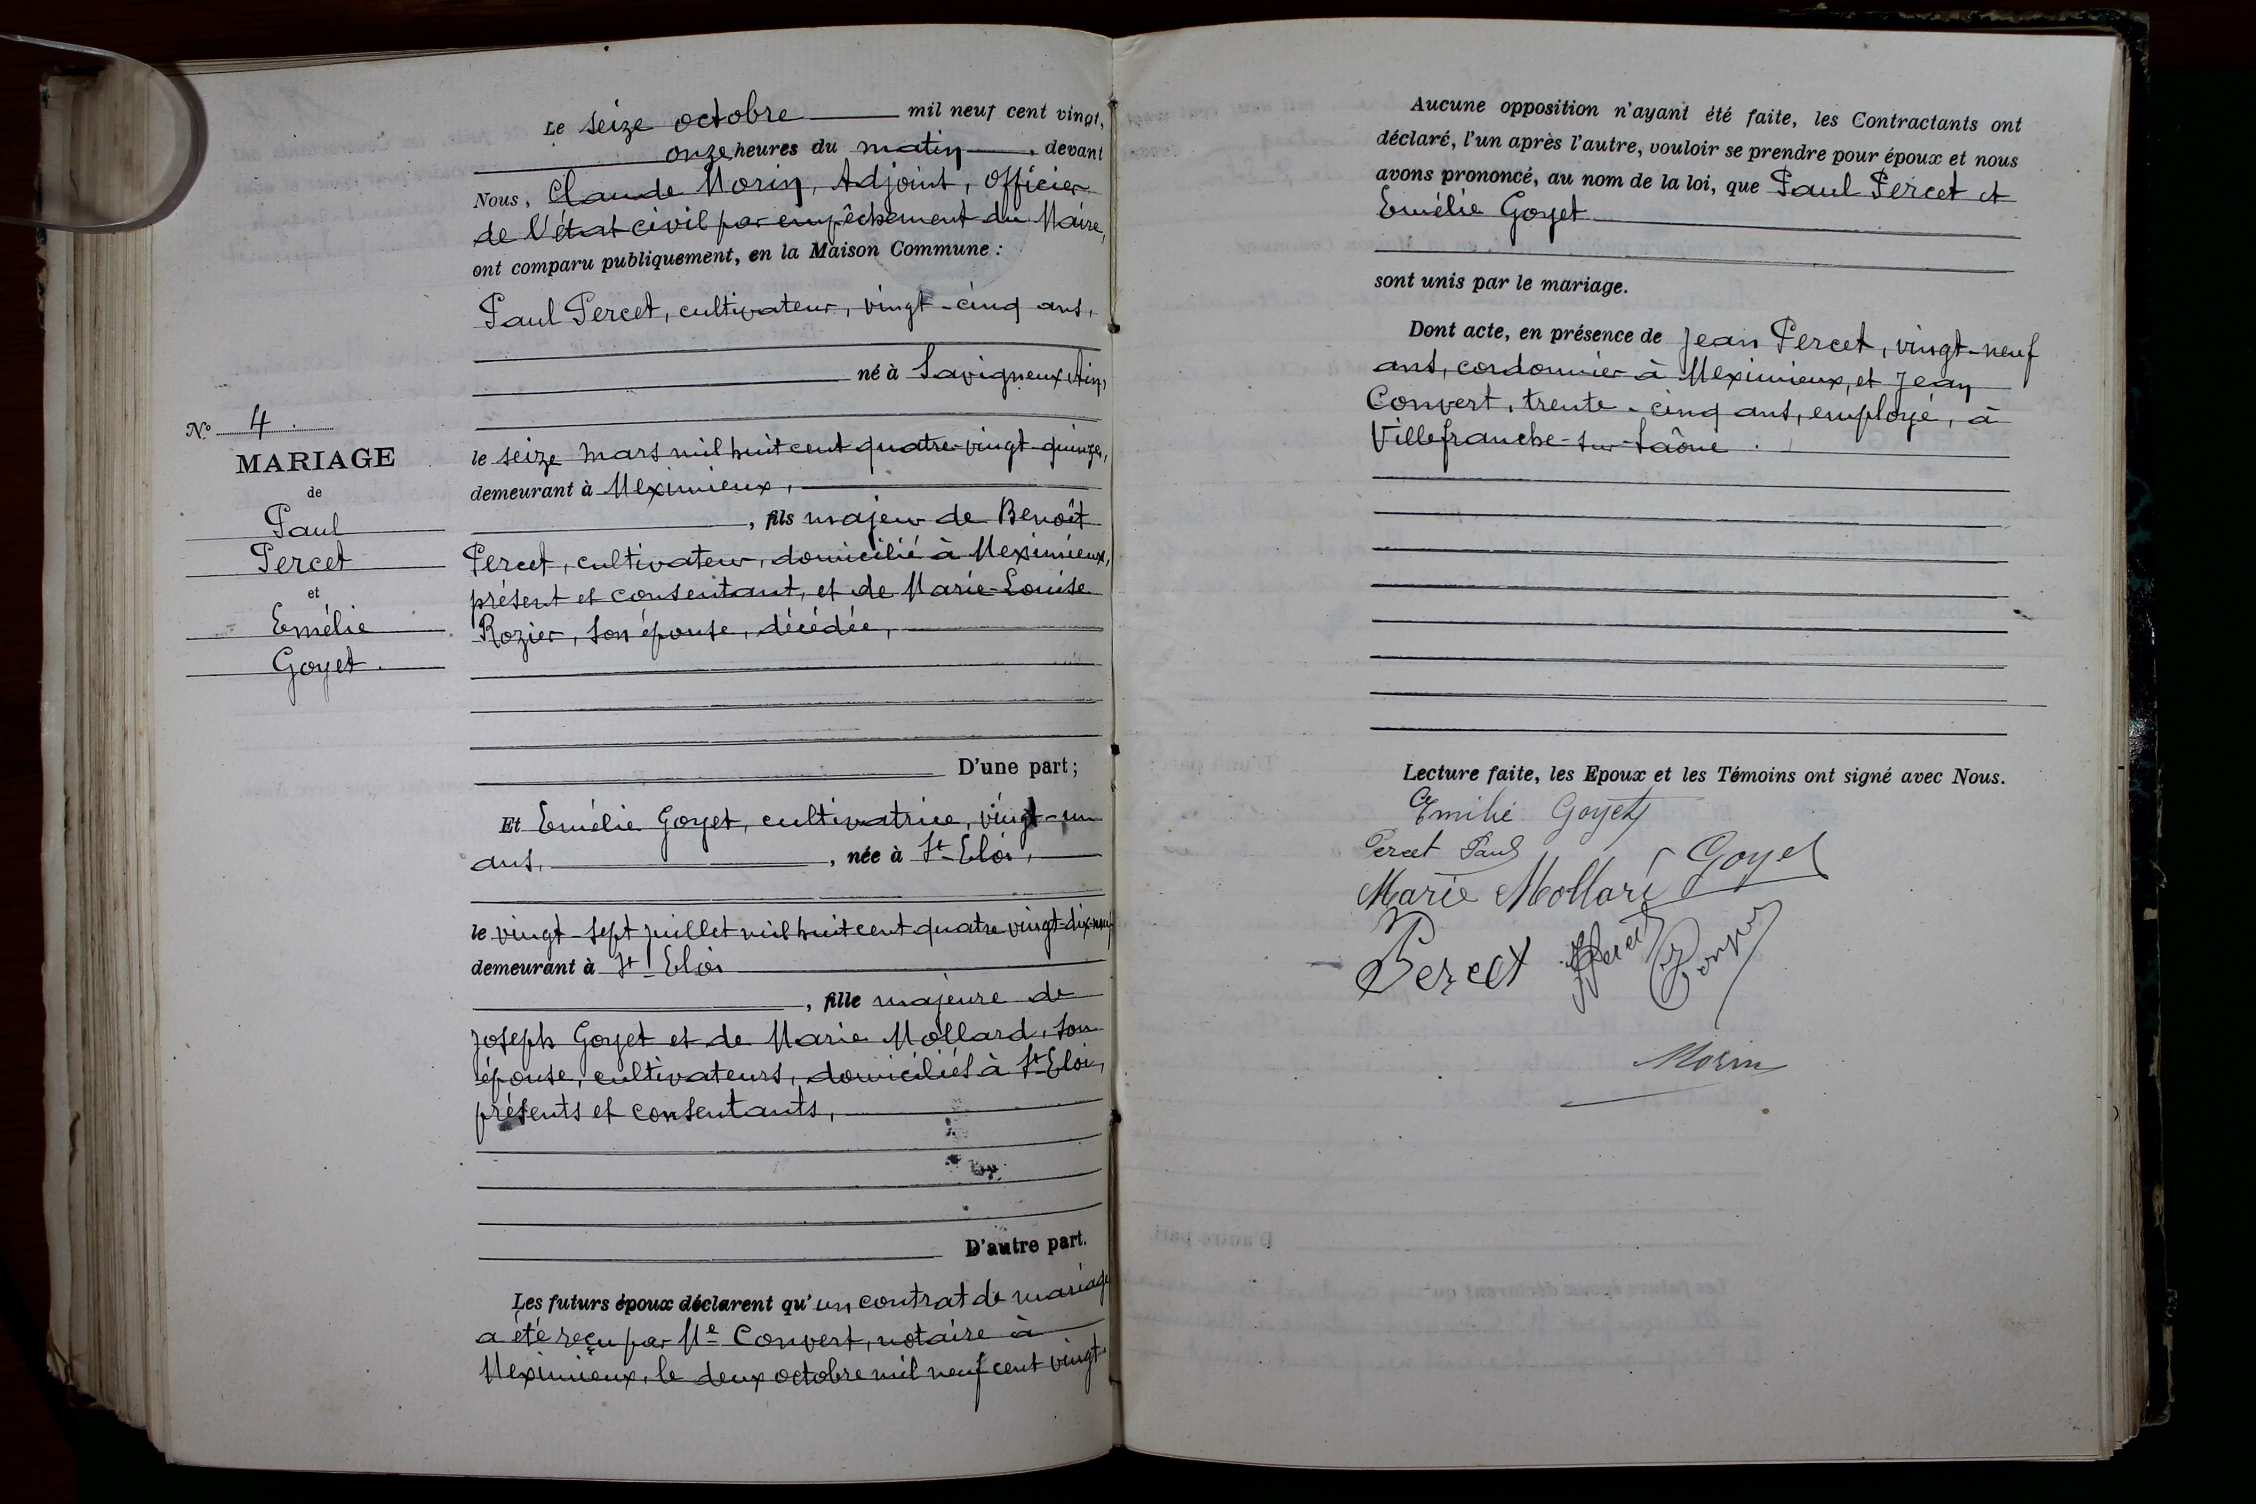 Le seize octobre mil neuf cent vingt,
onze heures du matin, devant
Nous, Claude Morin, Adjoint, Officier
de l'état civil par empêchement du Maire,
ont comparu publiquement, en la Maison Commune :
Paul Percet, cultivateur, vingt-cinq ans,
né à Savigneux (Ain)
le seize mars mil huit cent quatre-vingt-quinze,
demeurant à Meximieux,
, fils majeur de Benoît
Percet, cultivateur, domicilié à Meximieux,
présent et consentant, et de Marie-Louise
Rozier, son épouse, décédée,
D'une part ;
Et Emélie Goyet, cultivatrice, vingt-un
ans, , née à St Eloi,
le vingt-sept juillet mil huit cent quatre vingt-dix-neuf
demeurant à St Eloi
, fille majeure de
Joseph Goyet et de Marie Mollard, son
épouse, cultivateurs, domiciliés à St Eloi,
présents et consentants,
D'autre part.
Les futurs époux déclarent qu'un contrat de mariage
a été reçu par Me Convert, notaire à
Meximieux, le deux octobre mil neuf cent vingt
No 4.
MARIAGE
de
Paul
Percet
et
Emélie
Goyet.
Aucune opposition n'ayant été faite, les Contractants ont
déclaré, l'un après l'autre, vouloir se prendre pour époux et nous
avons prononcé, au nom de la loi, que Paul Percet et
Emélie Goyet
sont unis par le mariage.
Dont acte, en présence de Jean Percet, vingt-neuf
ans, cordonnier à Meximieux, et Jean
Convert, trente-cinq ans, employé, à
Villefranche-sur-Saône.
Lecture faite, les Epoux et les Témoins ont signé avec Nous.
Emilie Goyet
Percet Paul Goyet
Marie Mollard
Percet
Morin